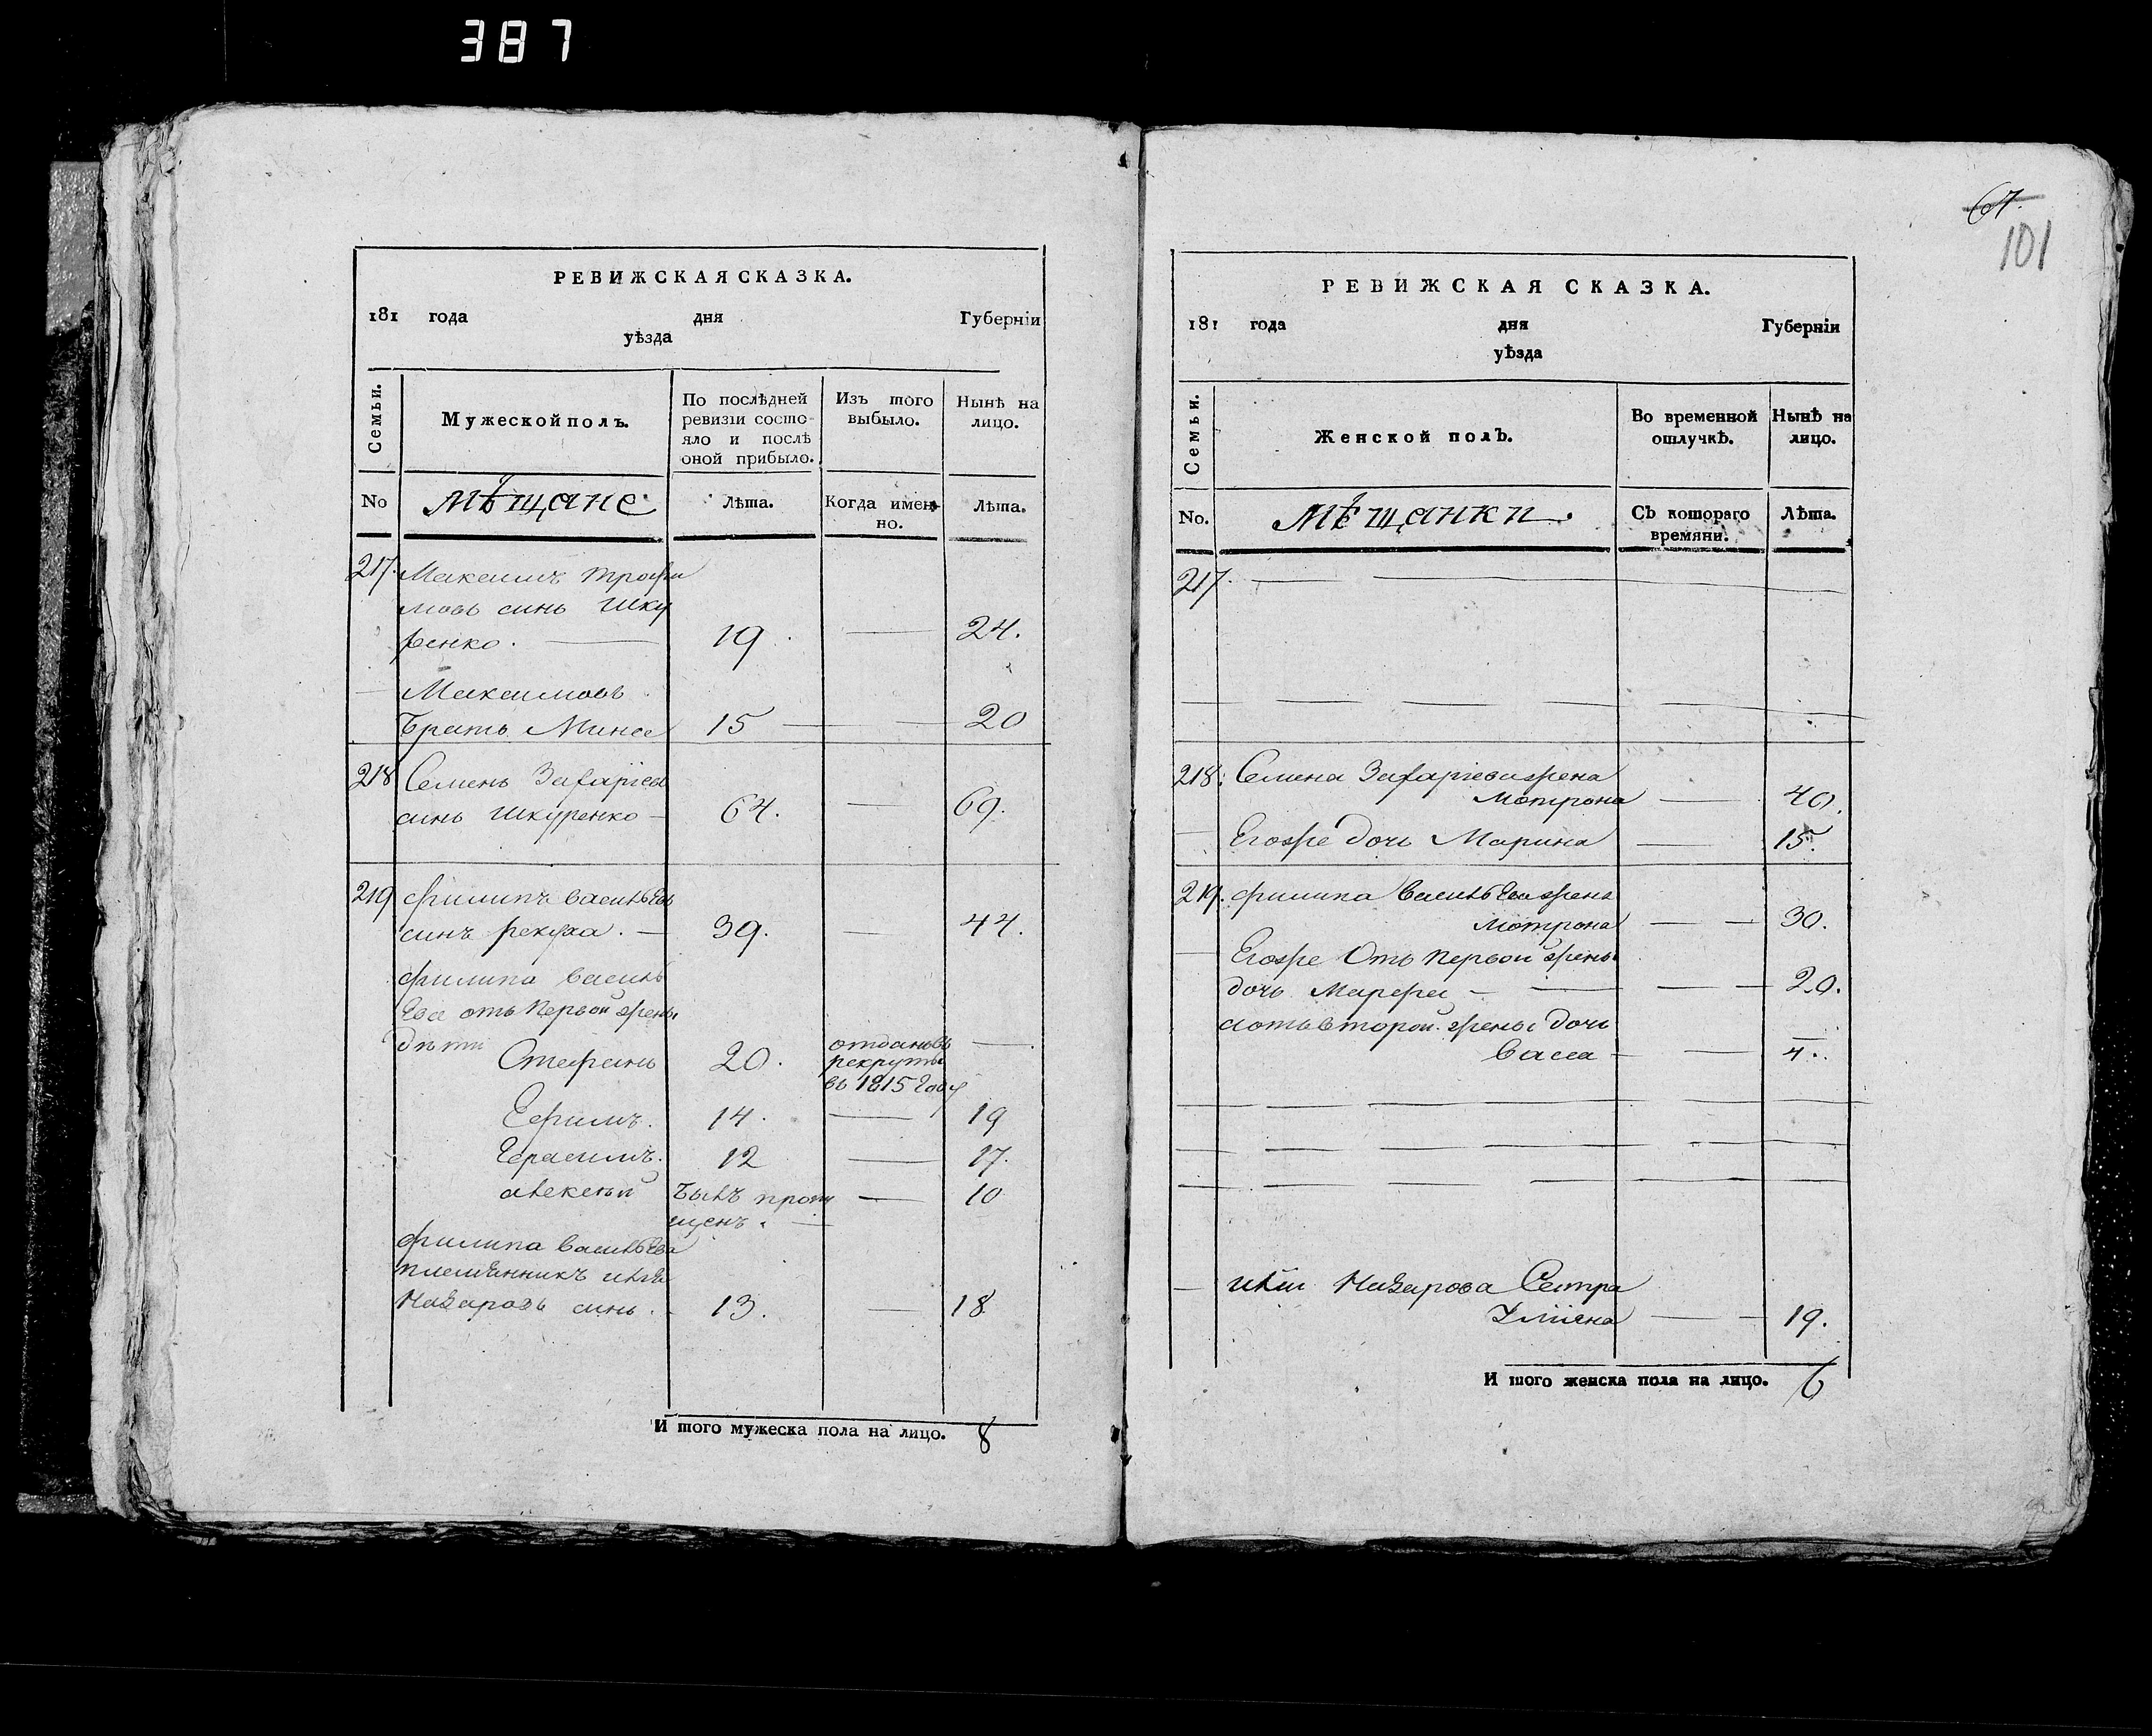 387
РЕВИЖСКАЯ СКАЗКА.
181 года дня Губерніи
уѣзда
Семьи.
Мужеской полъ.
По послѣдней ревизіи состояло и послѣ оной прибыло.
Изъ того выбыло.
Нынѣ на лицо.
No
мѣщане
Лѣта.
Когда именно.
Лѣта.
217. Максимъ трофи
мовъ синъ Шку
ренко. 19. 24.
Максимовъ
братъ Мина 15 20
218 Семенъ Захаріев
синъ Шкуренко 64. 69.
219 филипъ василъев
синъ рекуха. 39. 44.
филипа василъ
ева отъ первой жены
дѣти
Стефанъ 20. отданъ въ
рекруты
въ 1815 году
Ефимъ. 14. 19
Герасимъ. 12 17.
алексѣй былъ пропу
щенъ. 10
филипа василъева
племѣнникъ илія
Назаровъ синъ. 13. 18
И того мужеска пола на лицо. 8
67.
101
РЕВИЖСКАЯ СКАЗКА.
181 года дня Губерніи
уѣзда
Семьи.
Женской полъ.
Во временной отлучкѣ.
Нынѣ на лицо.
No.
мѣщанки.
Съ котораго времяни.
Лѣта.
217.
218. Семена Захаріева жена
мотрона 40.
Егожъ дочь Марина 15.
219. филипа василъева жена
мотрона 30.
Егожъ отъ первой жены
дочь Марфа 20.
а отъ второй жены дочь
васса 4.
иліи Назарова Сестра
Улїяна 19.
И того женска пола на лицо. 6